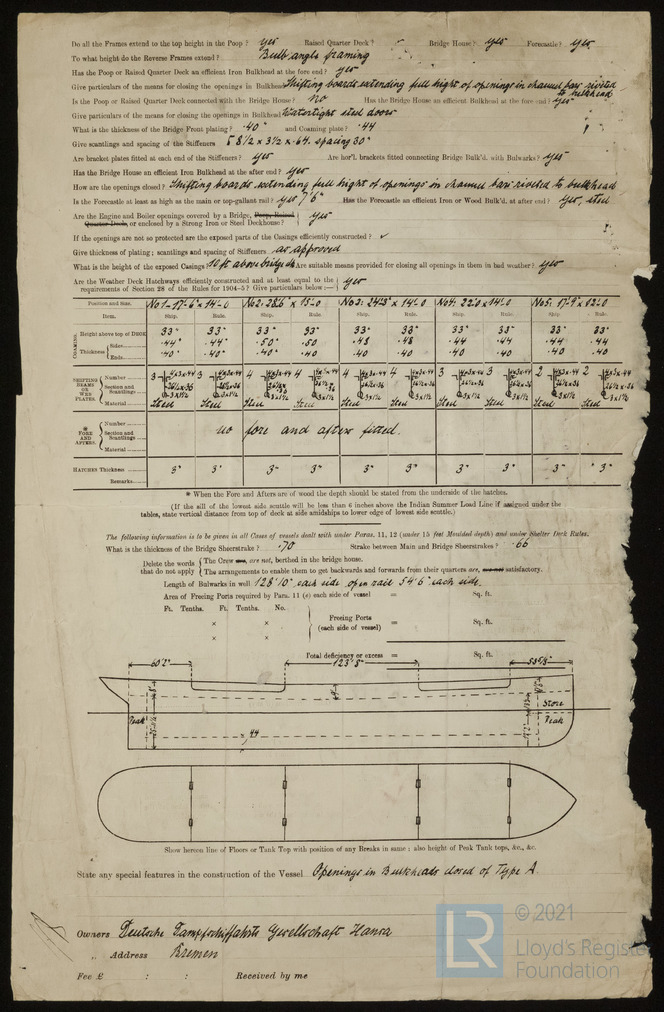 Do all the Frames extend to the top height in the Poop? yes Raised Quarter Deck? Bridge House? yes Forecastle? yes
To what height do the Reverse Frames extend? Bulb angle framing
Has the Poop or Raised Quarter Deck an efficient Iron Bulkhead at the fore end? yes
Give particulars of the means for closing the openings in Bulkhead Shifting boards extending full hight of openings in channel bars riveted to bulkhead
Is the Poop or Raised Quarter Deck connected with the Bridge House? No Has the Bridge House an efficient Bulkhead at the fore end? yes
Give particulars of the means for closing the openings in Bulkhead Watertight steel doors
What is the thickness of the Bridge Front plating? .40" and Coaming plate? .44
Give scantlings and spacing of the Stiffeners 8 1/2 x 3 1/2 x .64. spacing 30"
Are bracket plates fitted at each end of the Stiffeners? yes Are hor'l. brackets fitted connecting Bridge Bulk'd. with Bulwarks? yes
Has the Bridge House an efficient Iron Bulkhead at the after end? yes
How are the openings closed? Shifting boards extending full hight of openings in channel bars riveted to bulkhead
Is the Forecastle at least as high as the main or top-gallant rail? yes 7'6" Has the Forecastle an efficient Iron or Wood Bulk'd. at after end? yes, steel
Are the Engine and Boiler openings covered by a Bridge, Poop, Raised
Quarter Deck, or enclosed by a Strong Iron or Steel Deckhouse? yes
If the openings are not so protected are the exposed parts of the Casings efficiently constructed? ✓
Give thickness of plating; scantlings and spacing of Stiffeners as approved
What is the height of the exposed Casings? ft above bridge dk Are suitable means provided for closing all openings in them in bad weather? yes
Are the Weather Deck Hatchways efficiently constructed and at least equal to the
requirements of Section 28 of the Rules for 1904-5? Give particulars below:— yes
Position and Size. No 1 - 17'-6" x 14'-0 No 2: 28'6" x 15'-0 No 3: 24'-8" x 14'-0 No 4: 22'0 x 14'-0 No 5: 17'-9" x 12'-0
Item. Ship. Rule. Ship. Rule. Ship. Rule. Ship. Rule. Ship. Rule.
COAMING. Height above top of DECK 33" 33" 33" 33" 33" 33" 33" 33" 33" 33"
Thickness Sides .44" .44" .50" .50 .48 .48 .44 .44 .44 .44
Ends .40" .40" .40" .40 .40 .40 .40 .40 .40 .40
SHIFTING BEAMS OR WEB PLATES. Number 3 3 4 4 4 4 3 3 2 2
Section and Scantlings
Material Steel Steel Steel Steel Steel Steel Steel Steel Steel Steel
* FORE AND AFTERS. Number
Section and Scantlings no fore and afters fitted.
Material
HATCHES Thickness 3" 3" 3" 3" 3" 3" 3" 3" 3" 3"
Remarks
* When the Fore and Afters are of wood the depth should be stated from the underside of the hatches.
(If the sill of the lowest side scuttle will be less than 6 inches above the Indian Summer Load Line if assigned under the
tables, state vertical distance from top of deck at side amidships to lower edge of lowest side scuttle.)
The following information is to be given in all Cases of Vessels dealt with under Paras. 11, 12 (under 15 feet Moulded depth) and under Shelter Deck Rules.
What is the thickness of the Bridge Sheerstrake? .70 Strake between Main and Bridge Sheerstrakes? .66
Delete the words The Crew are, are not, berthed in the bridge house.
that do not apply The arrangements to enable them to get backwards and forwards from their quarters are, are not satisfactory.
Length of Bulwarks in well 128'10" each side open rail 54'6" each side.
Area of Freeing Ports required by Para. 11 (e) each side of vessel = Sq. ft.
Ft. Tenths. Ft. Tenths. No.
× × Freeing Ports
(each side of vessel) = Sq. ft.
× ×
Total deficiency or excess = Sq. ft.
60'2" 123'8"
Peak Store
Peak
44
Show hereon line of Floors or Tank Top with position of any Breaks in same; also height of Peak Tank tops, &c., &c.
State any special features in the construction of the Vessel Openings in Bulkheads closed of Type A.
Owners Deutsche Dampfschiffahrts Gesellschaft Hansa
„ Address Bremen
Fee £ : : Received by me
LR © 2021
Lloyd's Registe
Foundation